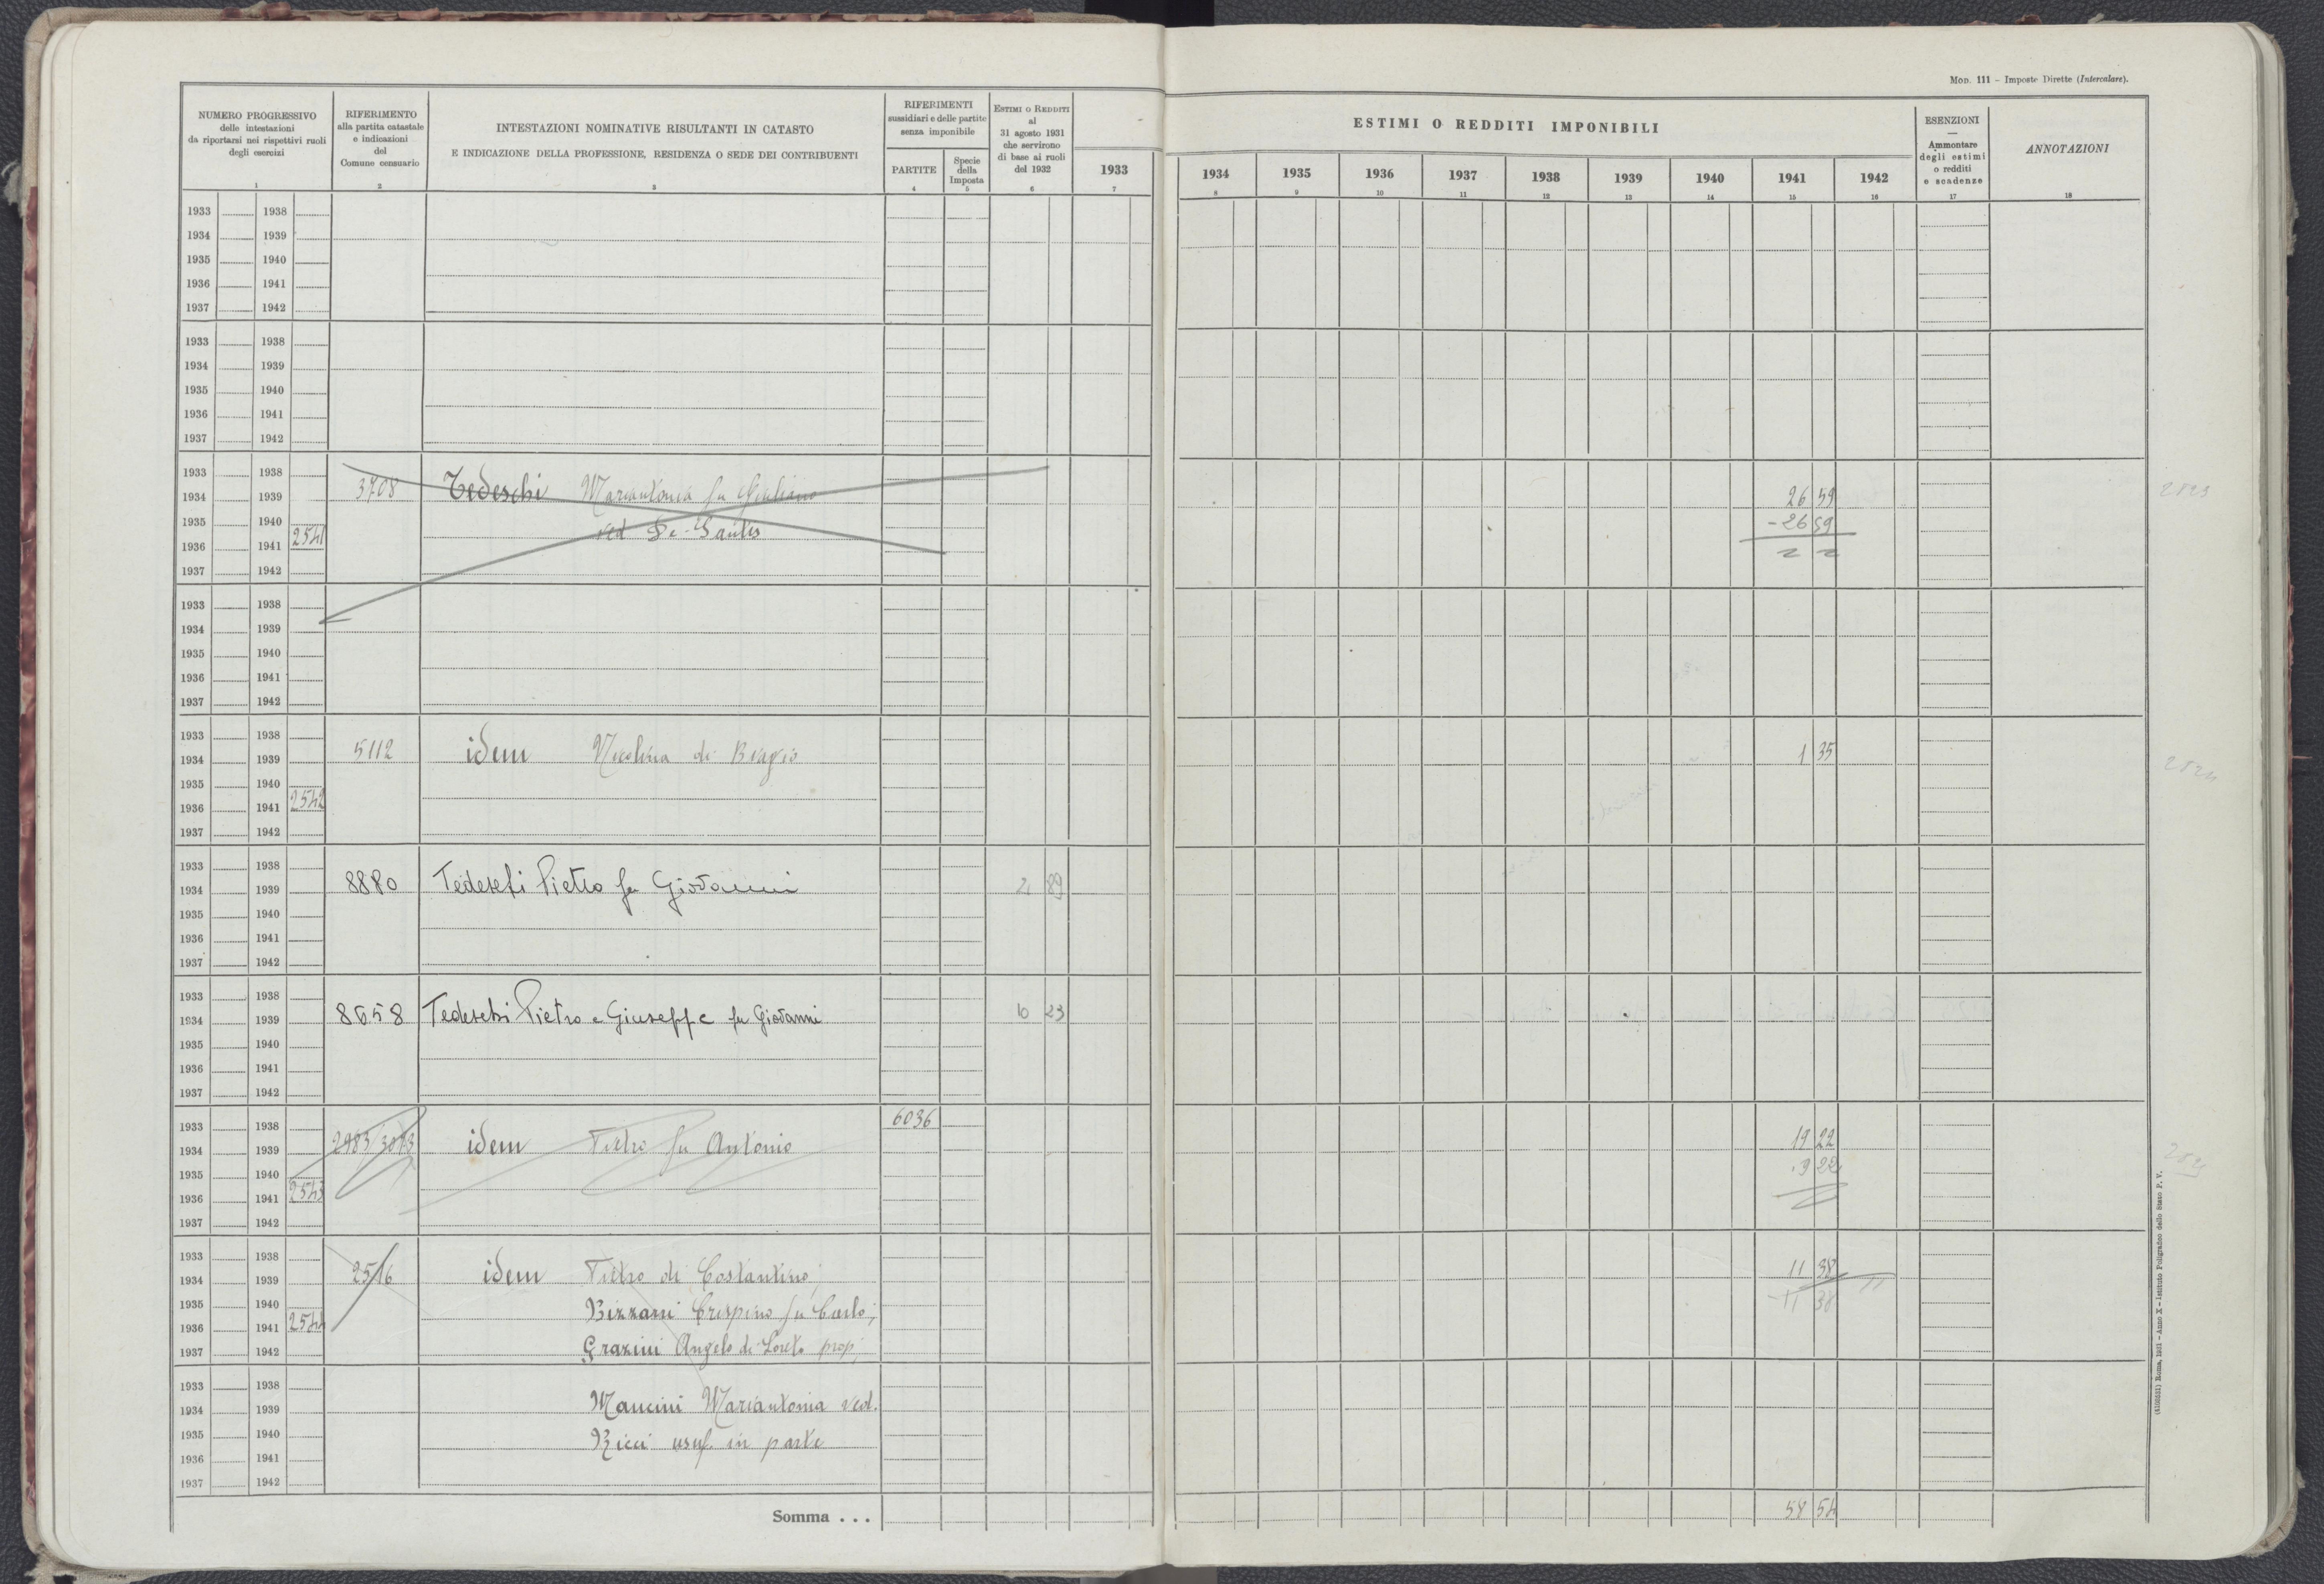 MOD. 111 – Imposte Dirette (Intercalare).
NUMERO PROGRESSIVO
delle intestazioni
da riportarsi nei rispettivi ruoli
degli esercizi
1
RIFERIMENTO
alla partita catastale
e indicazioni
del
Comune censuario
2
INTESTAZIONI NOMINATIVE RISULTANTI IN CATASTO
E INDICAZIONE DELLA PROFESSIONE, RESIDENZA O SEDE DEI CONTRIBUENTI
3
RIFERIMENTI
sussidiari e delle partite
senza imponibile
PARTITE
4
Specie
della
Imposta
5
ESTIMI O REDDITI
al
31 agosto 1931
che servirono
di base ai ruoli
del 1932
6
1933
7
ESTIMI O REDDITI IMPONIBILI
1934 1935 1936 1937 1938 1939 1940 1941 1942
8 9 10 11 12 13 14 15 16
ESENZIONI
—
Ammontare
degli estimi
o redditi
e scadenze
17
ANNOTAZIONI
18
1933 1938
1934 1939
1935 1940
1936 1941
1937 1942
1933 1938
1934 1939
1935 1940
1936 1941
1937 1942
1933 1938
1934 1939 3708 Tedeschi Mariantonia fu Giuliano 26 59
1935 1940 ved De-Santis -26 59
1936 1941 2541
1937 1942
1933 1938
1934 1939
1935 1940
1936 1941
1937 1942
1933 1938
1934 1939 5112 idem Nicolina di Biagio 1 35
1935 1940
1936 1941 2542
1937 1942
1933 1938
1934 1939 8880 Tedeschi Pietro fu Giovanni 2 89
1935 1940
1936 1941
1937 1942
1933 1938
1934 1939 8658 Tedeschi Pietro e Giuseppe fu Giovanni 10 23
1935 1940
1936 1941
1937 1942
1933 1938 6036
1934 1939 idem Pietro fu Antonio 19 22
1935 1940 19 22
1936 1941 2543
1937 1942
1933 1938
1934 1939 2516 idem Pietro di Costantino, 11 38
1935 1940 Bizzarri Crespino fu Carlo; -11 38
1936 1941 2544
1937 1942 Grazini Angelo di Loreto prop;
1933 1938
1934 1939 Mancini Mariantonia ved.
1935 1940 Ricci usuf. in parte
1936 1941
1937 1942
Somma . . . 58 54
Roma, 1931 – Anno X – Istituto Poligrafico dello Stato P. V.